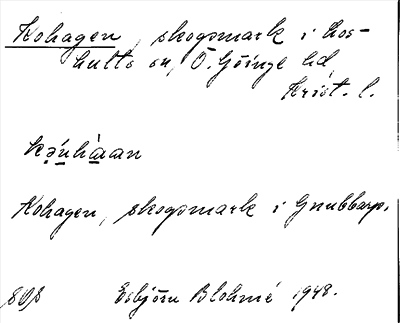 Kohagen, skogsmark i Los-
hults sn, Ö. Göinge hd
Krist. l.
Kohagen, skogsmark i Gnubbarp.
808 Esbjörn Blohmé 1948.